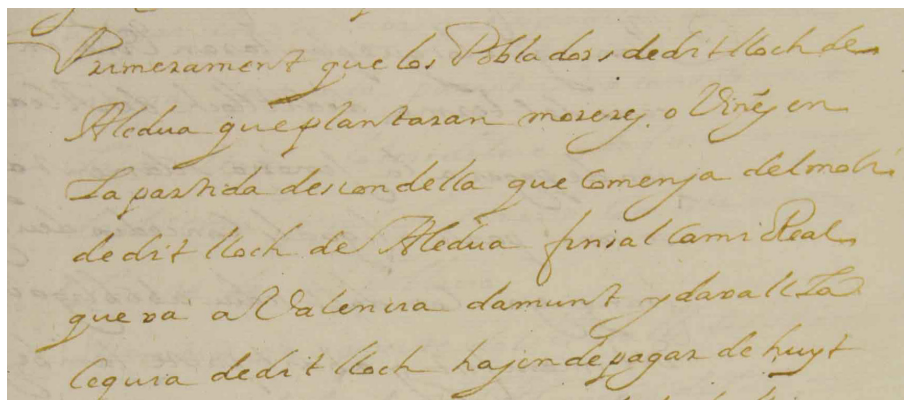 Primerament que los Pobladors de dit lloch de
Aledua que plantaran moreres o Viñes en
La partida descondella que Comensa del moli
de dit lloch de Aledua fins al Cami Real
que va a Valencia damunt y davall La
Cequia de dit lloch hajen de pagar de huyt